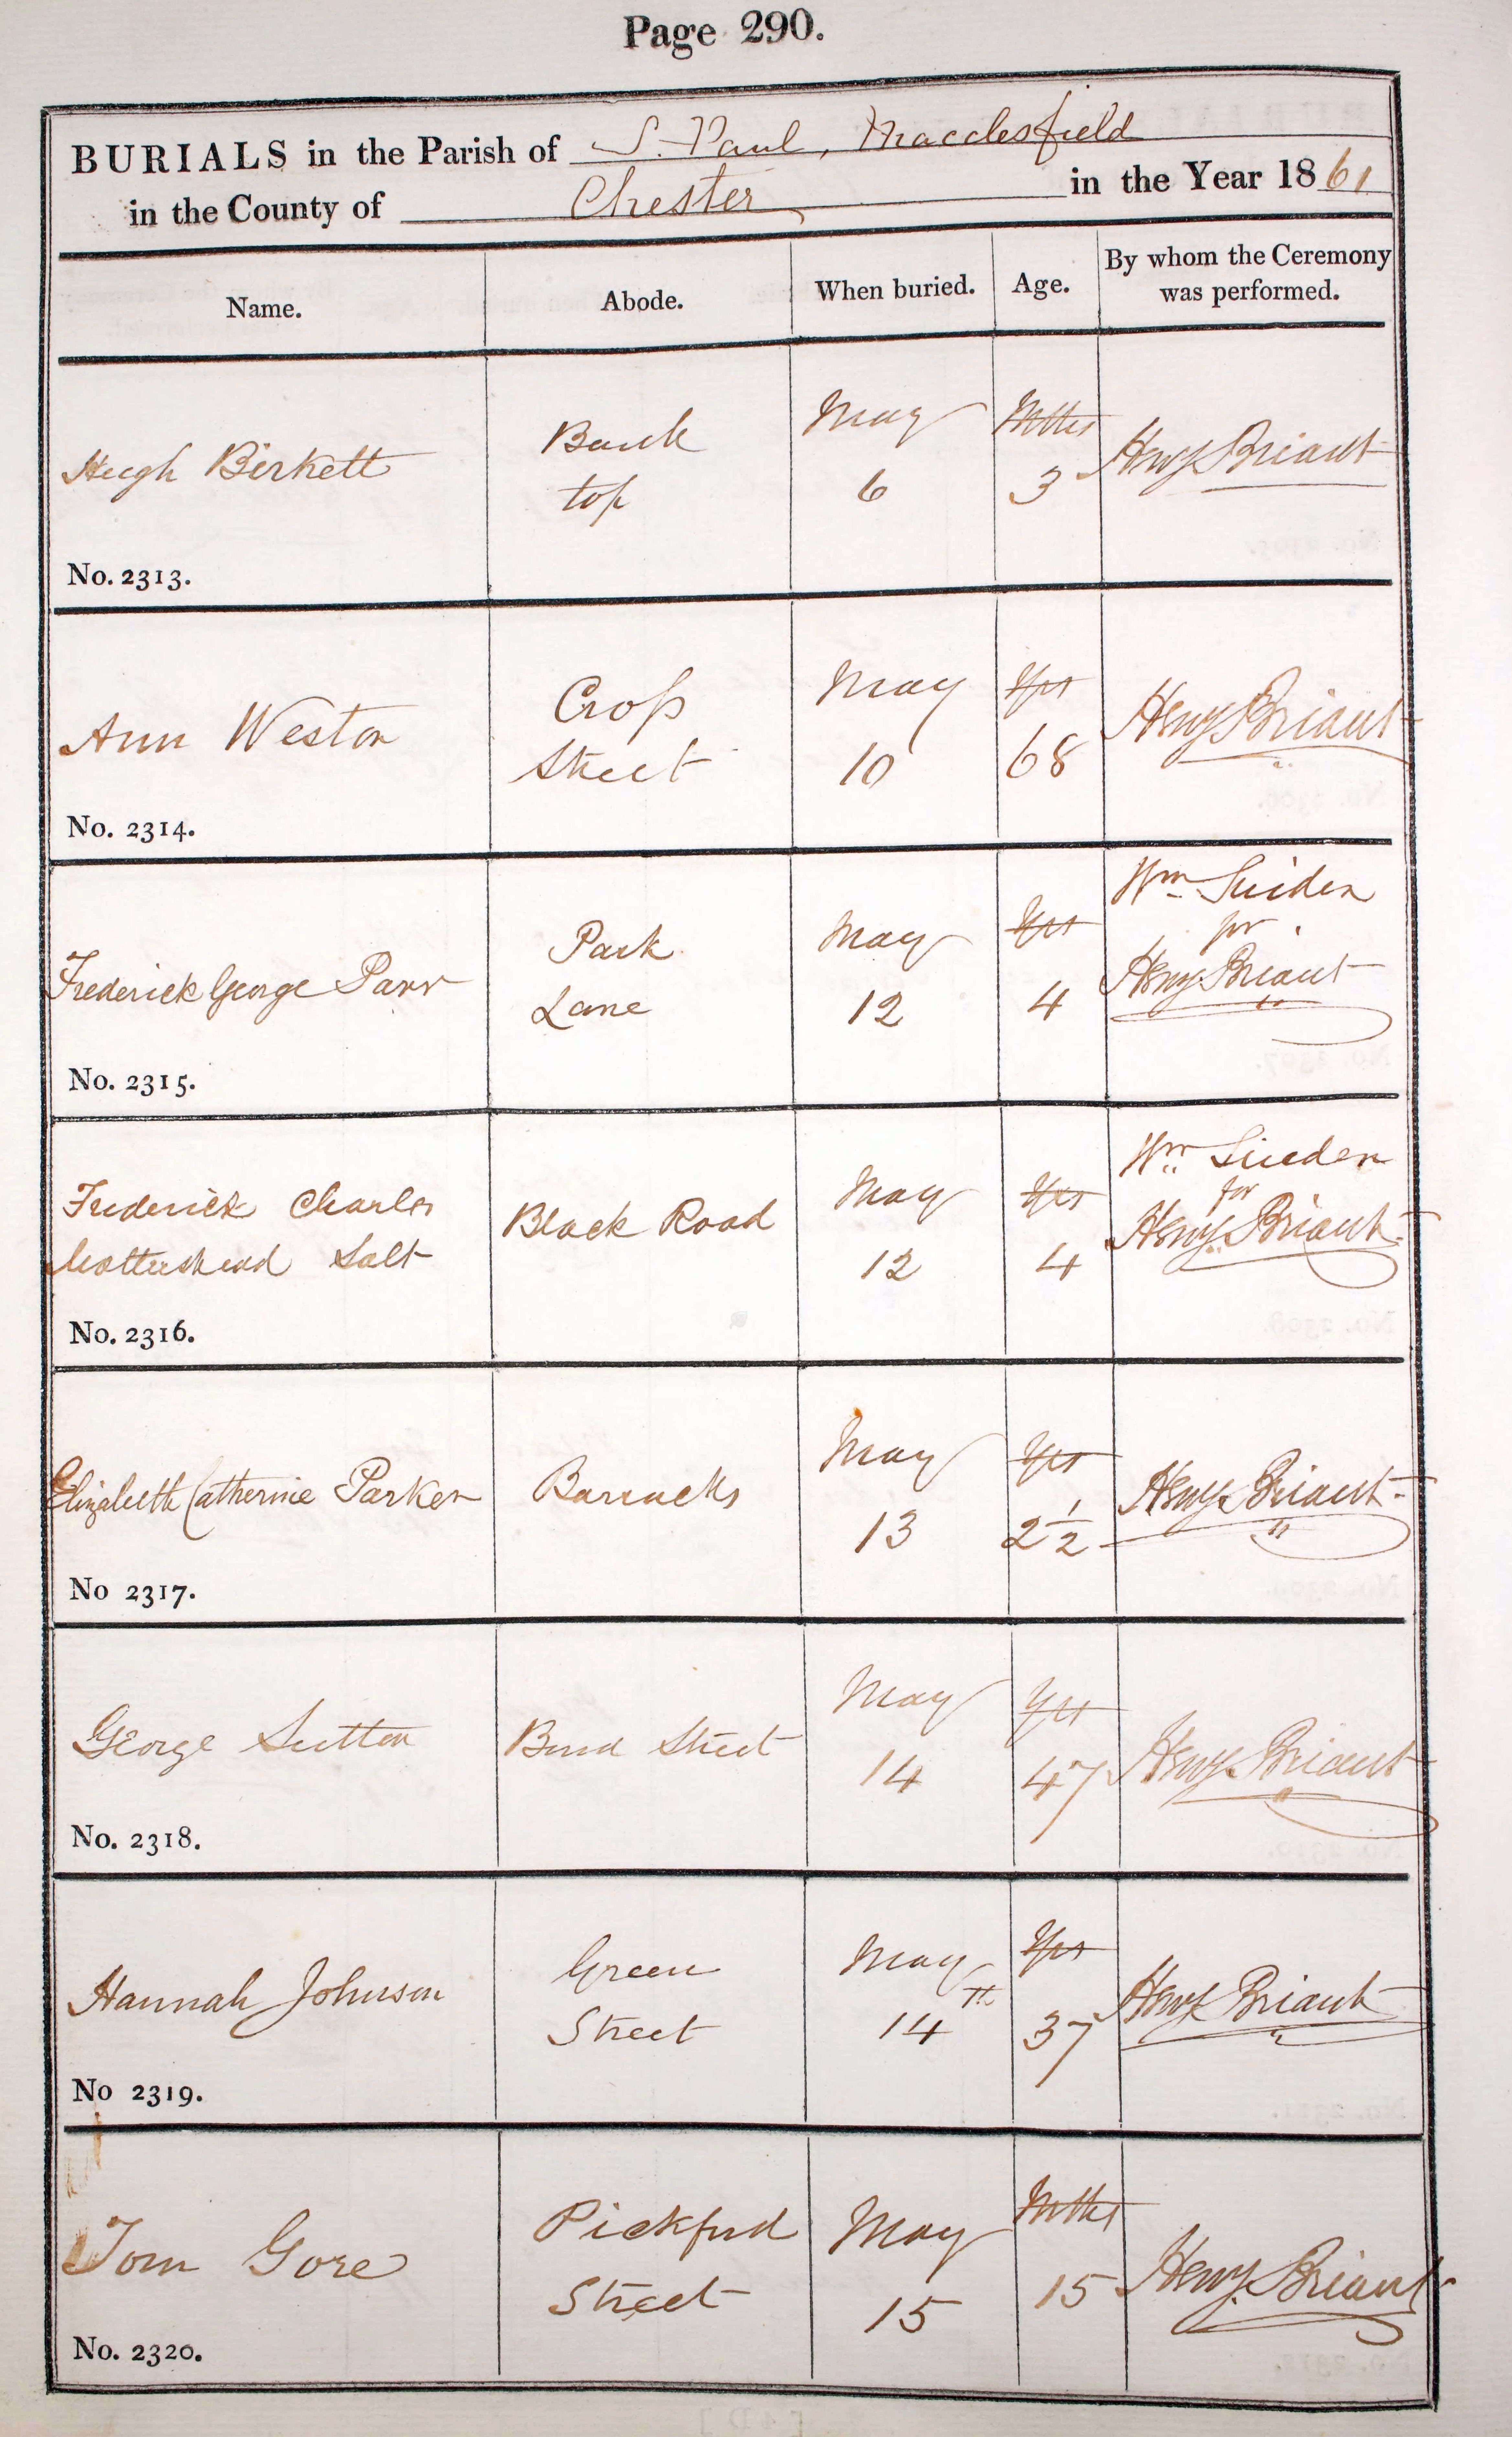 Page 290.
BURIALS in the Parish of S. Paul, Macclesfield
in the County of Chester in the Year 1861
Name. Abode. When buried. Age. By whom the Ceremony was performed.
Hugh Birkett
Bank
top
May
6
Mths
3
Henry Briant
No. 2313.
Ann Weston
Cross
Street
May
10
Yrs
68
Henry Briant
No. 2314.
Frederick George Parr
Park
Lane
May
12
Yrs
4
Wm
for
Henry Briant
No. 2315.
Frederick Charles
Mottershead Salt
Black Road
May
12
Yrs
4
Wm
for
Henry Briant
No. 2316.
Elizabeth Catherine Parker
Barracks
May
13
Yrs
2 1/2
Henry Briant
No 2317.
George Sutton
Bond Street
May
14
Yrs
47
Henry Briant
No. 2318.
Hannah Johnson
Green
Street
May
14th
Yrs
37
Henry Briant
No 2319.
Tom Gore
Pickford
Street
May
15
Mths
15
Henry Briant
No. 2320.